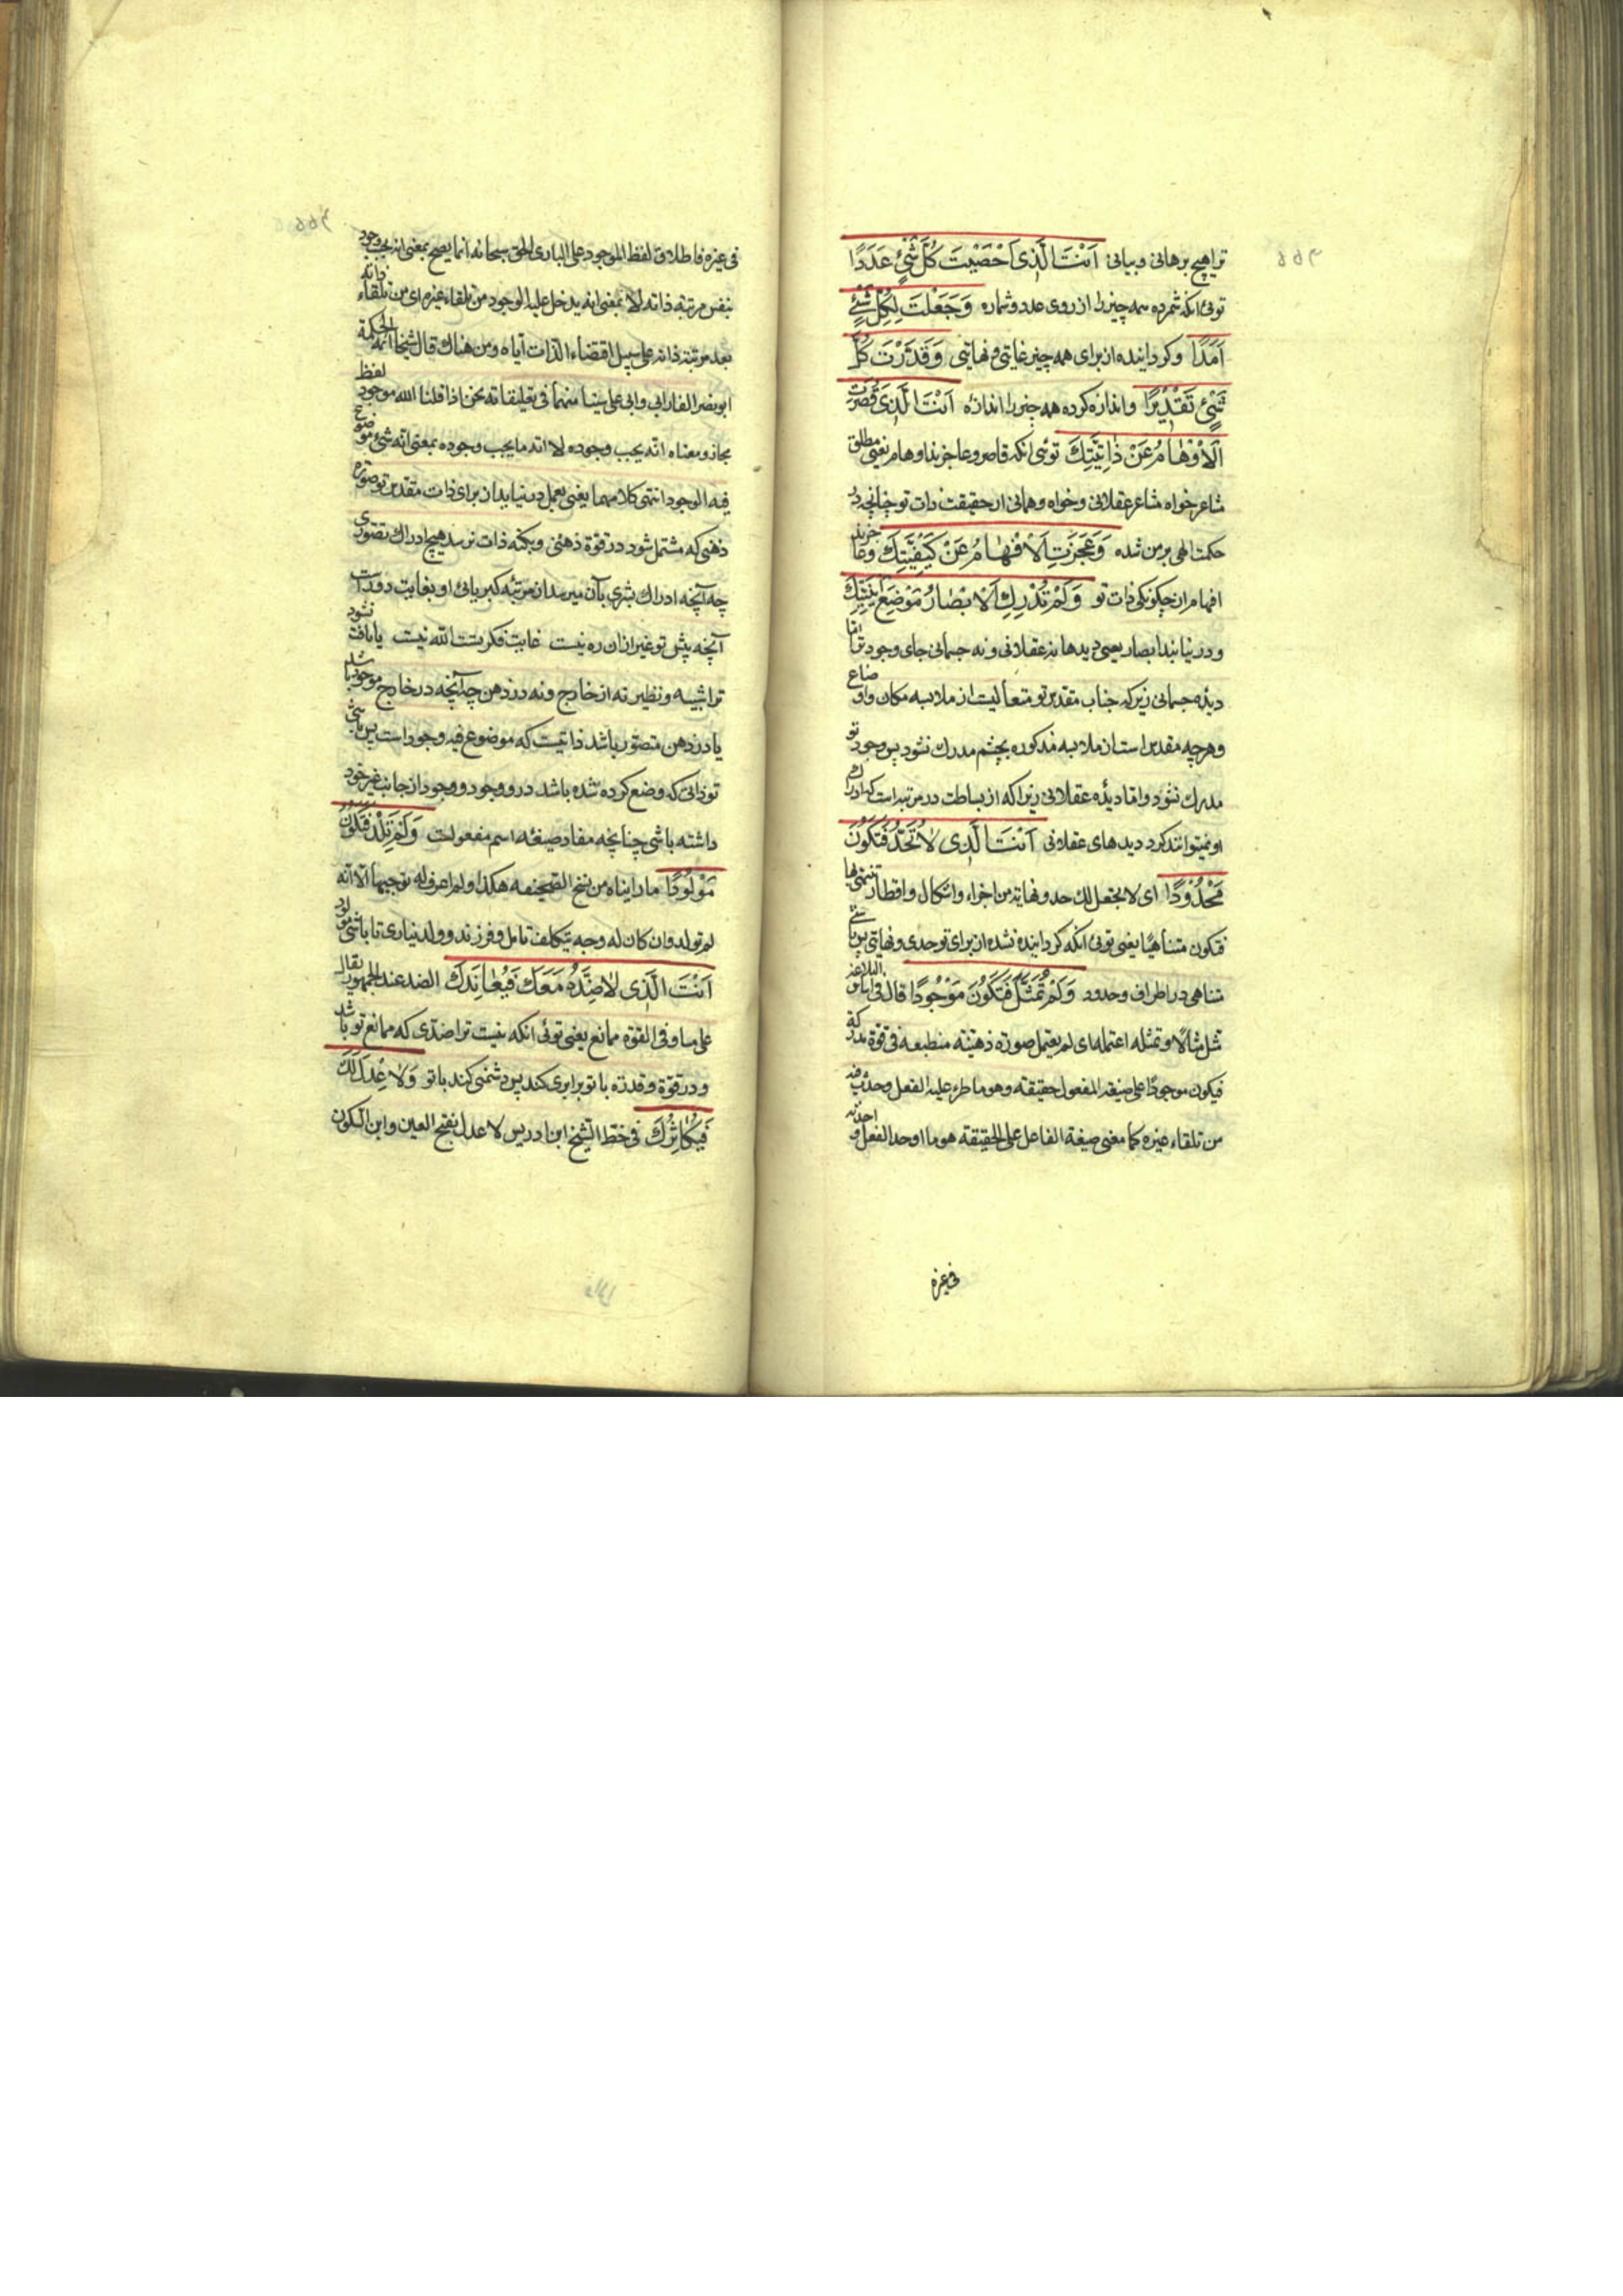 تراهیچ برهانی و بیانی اَنْتَ الَّذی اَحْصَیْتَ کُلَّ شَیْءٍ عَدَدًا
توئی انکه شمرده همه چیز را از روی عدد و شماره وَجَعَلْتَ لِکُلِّ شَیْءٍ
اَمَدًا و کرداینده از برای همه چیز غایتی و نهایتی وَقَدَّرْتَ کُلَّ
شَیْءٍ تَقْدیْرًا و اندازه کرده همه چیز را اندازه اَنْتَ الَّذی قَصُرَتِ
الْاَوْهامُ عَنْ ذاتِیَّتِکَ توئی انکه قاصر و عاجزند اوهام یعنی مطلق
مشاعر خواه مشاعر عقلانی و خواه وهمانی از حقیقت ذات تو چنانچه در
حکمت الهی برهن شده وَعَجَزَتِ الْاَفْهامُ عَنْ کَیْفِیَّتِکَ و عاجزند
افهام از چکونکی ذات تو وَلَمْ تُدْرِکِ الْاَبْصارُ مَوْضِعَ اَیْنِیَّتِکَ
و در نیابند ابصار یعنی دیدها نه عقلانی و نه جسمانی جای وجود ترا اما
دیده جسمانی زیرکه جناب مقدس تو متعالیست از ملابسه مکان و اوضاع
و هرچه مقدس است از ملابسه مذکوره بچشم مدرک نشود پس وجود تو
مدرک نشود و اما دیده عقلانی زیرا که از بساطت در مرتبه است که ادراک
او نمیتوانند کرد دیدهای عقلانی اَنْتَ الَّذی لا تُحَدُّ فَتَکُونَ
مَحْدُوْدًا ای لا یجعل لک حد و نهایة من اجزاء و اشکال و اقطار تنتهی بها
فتکون متناهیًا یعنی توئی انکه کرداینده نشده از برای تو حدی و نهایتی پس باشی
متناهی در اطراف و حدود وَلَمْ تُمَثَّلْ فَتَکُونَ مَوْجُودًا قال فی اساس البلاغة
مثل مثالاً و تمثله اعتمله ای لم یعتمل صورة ذهنیّة منطبعة فی قوة مدرکة
فیکون موجودًا علی صیغة المفعول حقیقة و هو ما طرء علیه الفعل و حدث فیه
من تلقاء غیره کما معنی صیغة الفاعل علی الحقیقة هو ما اوجد الفعل و احدثه
فی غیره
فی غیره فاطلاق لفظ الموجود علی الباری الحق سبحانه انما یصح بمعنی انه یجب وجود
بنفس مرتبة ذاته لا بمعنی انه یدخل علیه الوجود من تلقاء غیره ای من تلقاء ذاته
بعد مرتبة ذاته علی سبیل اقتضاء الذات ایاه و من هناک قال شیخا ائمة الحکمة
ابو نصر الفارابی و ابی علی سینا منهما فی تعلیقاته نحن اذا قلنا الله موجود لفظ
مجاز و معناه انه یجب وجوده لا انه ما یجب وجوده بمعنی انه شیء موضوع
فیه الوجود انتهی کلامهما یعنی بعمل در نیاید از برای ذات مقدس تو صورة
ذهنی که مشتمل شود در قوّة ذهنی و بکنه ذات نرسد هیچ ادراک تصوّری
چه آنچه ادراک بشری بآن میرسد از مرتبه کبریائی او بغایت دور است
آنچه پیش تو غیر از ان ره نیست غایت فکر تست الله نیست یا یافت نشود
ترا شبیه و نظیر نه از خارج و نه در ذهن چه آنچه در خارج موجود باشد
یا در ذهن متصوّر باشد ذاتیست که موضوع فیه وجود است پس باشی
تو ذاتی که وضع کرده شده باشد در و وجود و وجود از جانب غیر خود
داشته باشی چنانچه مفاد صیغه اسم مفعولست وَلَمْ تَلِدْ فَتَکُونَ
مَوْلُودًا ما رایناه من نسخ الصحیفه هکذا و لم اعرف له توجیها الا انه
لم تولد و ان کان له وجه بتکلف تامل و فرزند و ولد نیاری تا باشی مولود
اَنْتَ الَّذی لا ضِدَّ مَعَکَ فَیُعانِدَکَ الضد عند الجمهور یقال
علی مساو فی القوة ممانع یعنی توئی انکه نیست ترا ضدّی که ممانع تو باشد
و در قوّة و قدرة با تو برابری کند پس دشمنی کند با تو وَلا عِدْلَ لَکَ
فَیُکاثِرَکَ فی خطّ الشیخ ابن ادریس لا عدل بفتح العین و ابن السکون